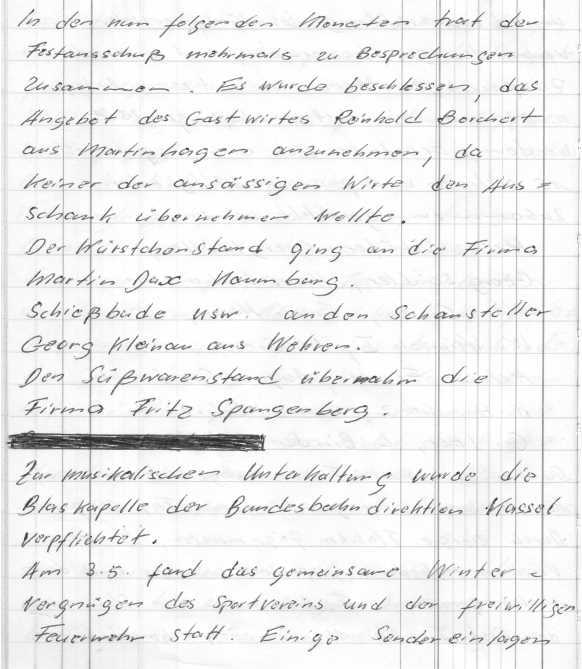 In den nun folgenden Monaten trat der
Festausschuß mehrmals zu Besprechungen
zusammen. Es wurde beschlossen, das
Angebot des Gastwirtes Reinhold Borchert
aus Martinhagen anzunehmen, da
keiner der ansässigen Wirte den Aus=
schank übernehmen wollte.
Der Würstchenstand ging an die Firma
Martin Dax Naumburg.
Schießbude usw. an den Schausteller
Georg Kleinau aus Wehren.
Den Süßwarenstand übernahm die
Firma Fritz Spangenberg.
Zur musikalischen Unterhaltung wurde die
Blaskapelle der Bundesbahndirektion Kassel
verpflichtet.
Am 3.5. fand das gemeinsame Winter=
vergnügen des Sportvereins und der freiwilligen
Feuerwehr statt. Einige Sondereinlagen